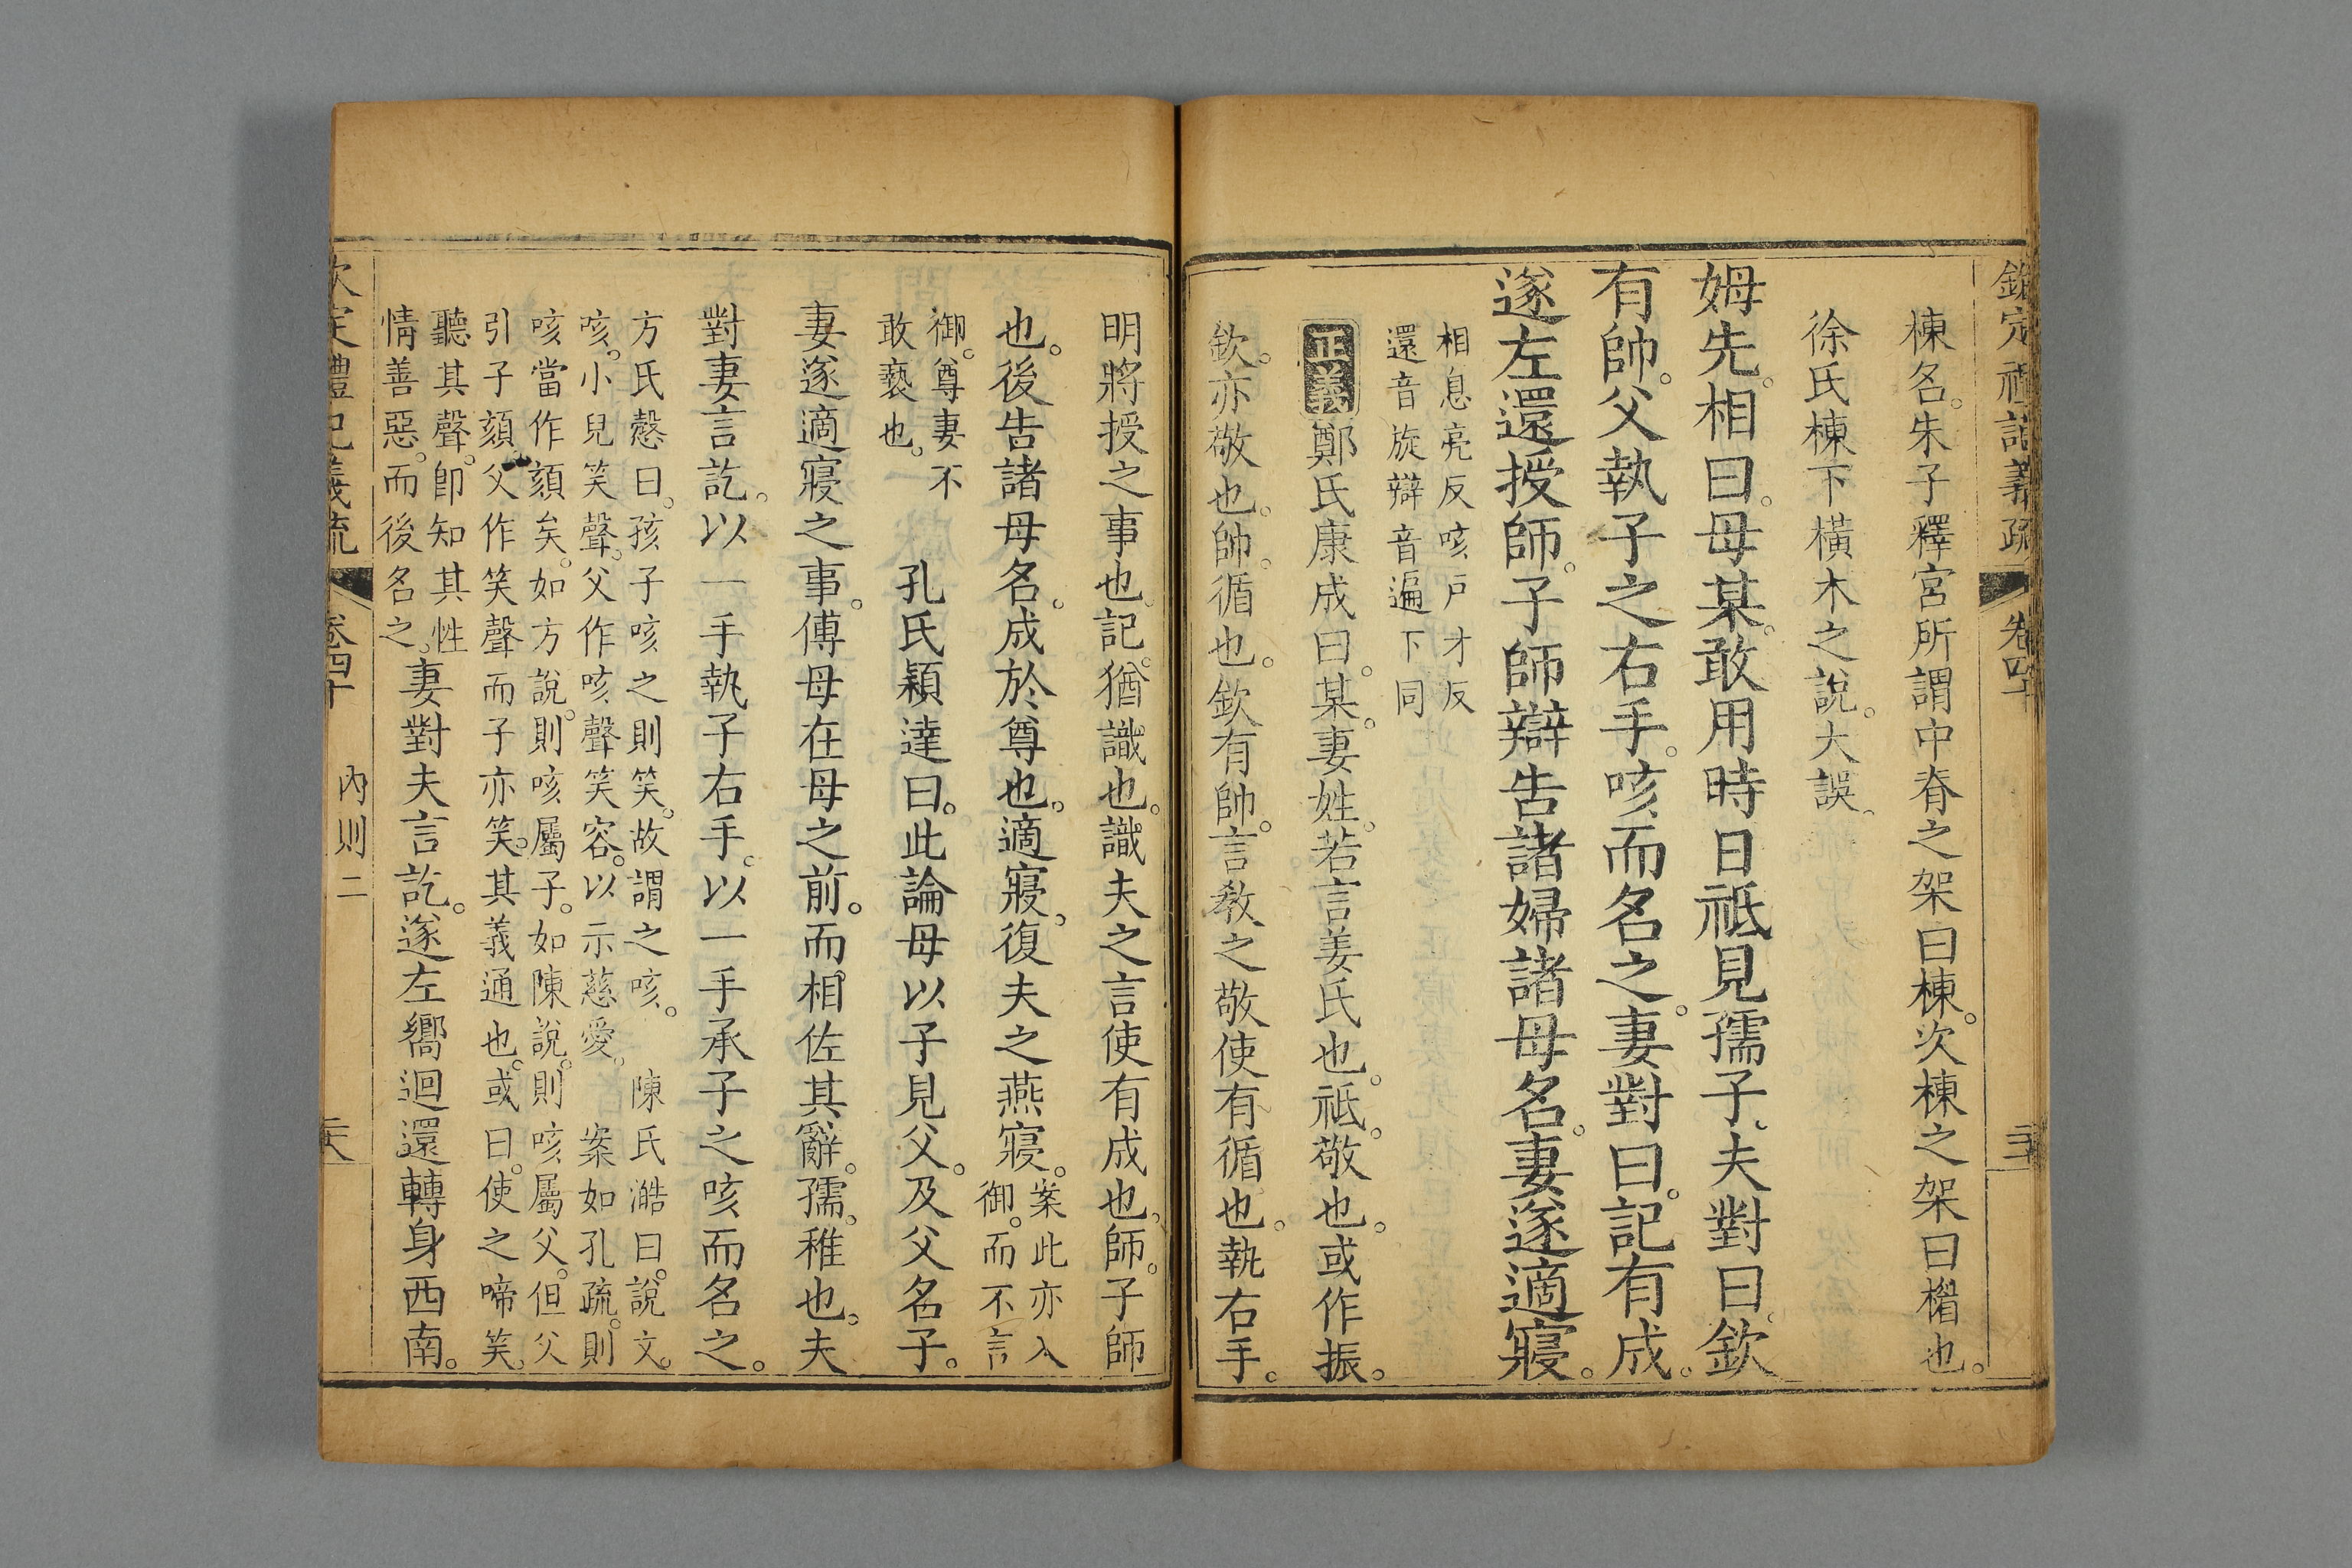 欽定禮記義疏 卷四十
棟名。朱子釋宮所謂中脊之架曰棟。次棟之架曰楣也。
徐氏棟下橫木之說。大誤。
姆先。相曰。母某。敢用時日祗見孺子。夫對曰。欽
有帥。父執子之右手。咳而名之。妻對曰。記有成。
遂左還授師。子師辯告諸婦諸母名。妻遂適寢。
相息亮反咳戶才反
還音旋辯音遍下同
正義鄭氏康成曰。某。妻姓。若言姜氏也。祗。敬也。或作振。
欽。亦敬也。帥。循也。欽有帥。言敎之敬使有循也。執右手。
明將授之事也。記。猶識也。識夫之言使有成也。師。子師
也。後告諸母名。成於尊也。適寢。復夫之燕寢。
案此亦入
御。而不言
御。尊妻不
敢褻也。
孔氏穎達曰。此論母以子見父。及父名子。
妻遂適寢之事。傅母在母之前。而相佐其辭。孺。稚也。夫
對妻言訖。以一手執子右手。以一手承子之咳而名之。
方氏慤曰。孩子咳之則笑。故謂之咳。 陳氏澔曰。說文。
咳。小兒笑聲。父作咳聲笑容。以示慈愛。 案如孔疏。則
咳當作頦矣。如方說。則咳屬子。如陳說。則咳屬父。但父
引子頦。父作笑聲而子亦笑。其義通也。或曰。使之啼笑。
聽其聲。卽知其性
情善惡。而後名之。
妻對夫言訖。遂左嚮迴還轉身西南。
欽定禮記義疏 卷四十 內則二